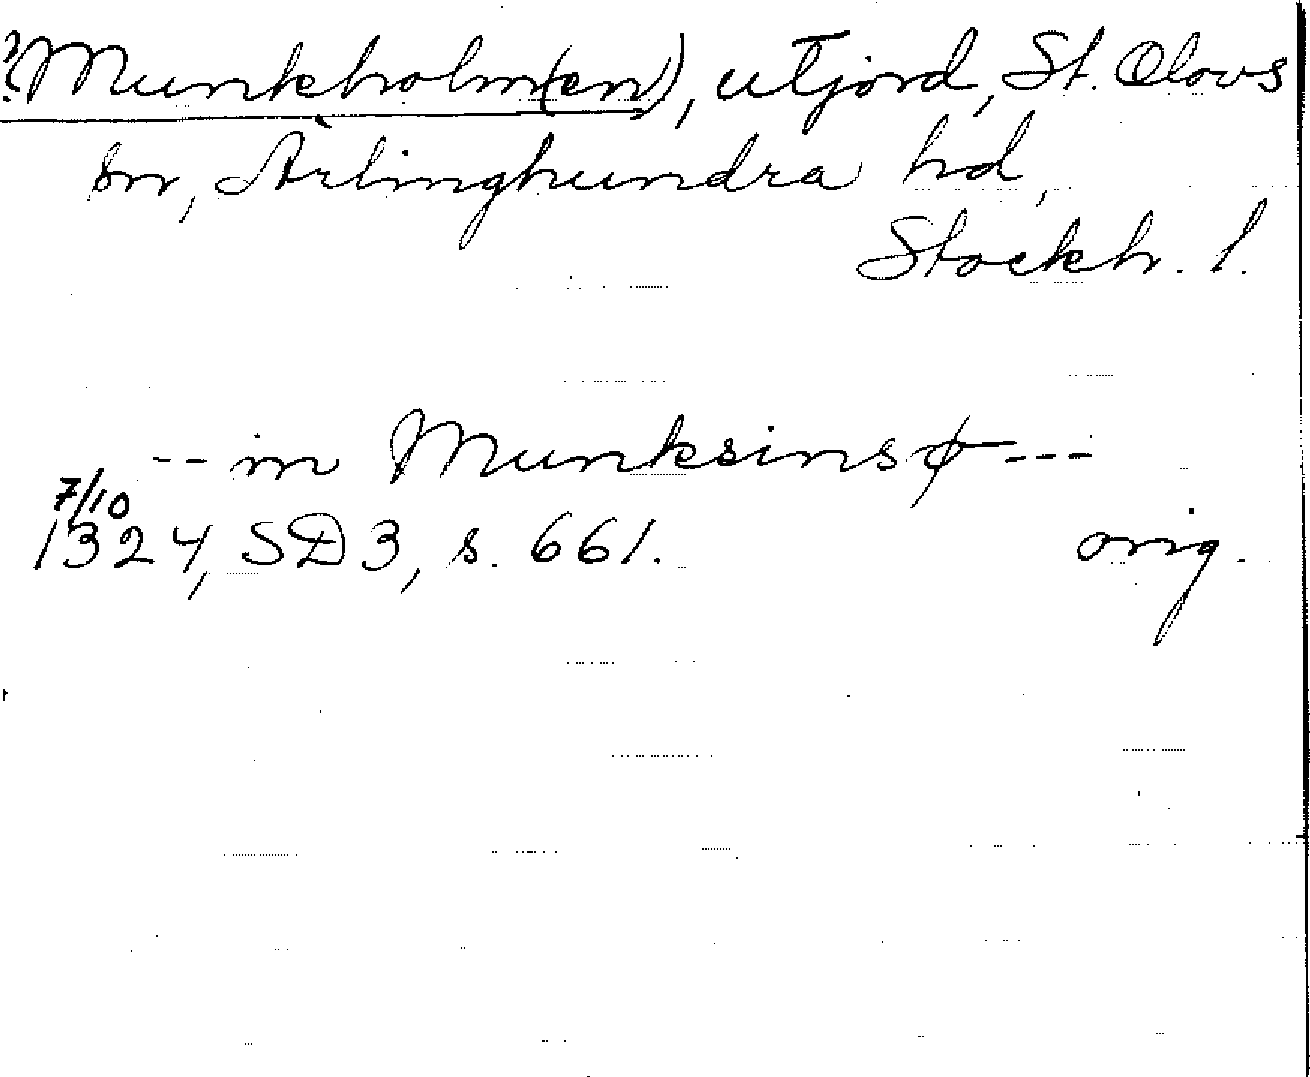 ?Munkholm(en), utjord, St. Olovs
sn, Ärlinghundra hd,
Stockh. l.
-- in Munksinsø ---
7/10
1324, SD3, s. 661. orig.